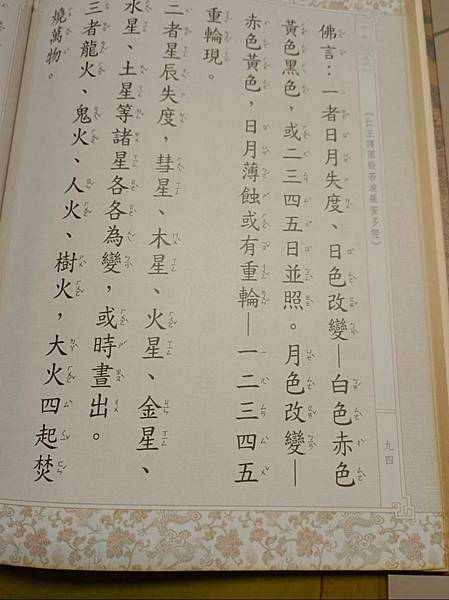 《仁王護國般若波羅蜜多經》
九四
佛言：一者日月失度、日色改變—白色赤色
黃色黑色，或二三四五日並照。月色改變—
赤色黃色，日月薄蝕或有重輪—一二三四五
重輪現。
二者星辰失度，彗星、木星、火星、金星、
水星、土星等諸星各各為變，或時晝出。
三者龍火、鬼火、人火、樹火，大火四起焚
燒萬物。